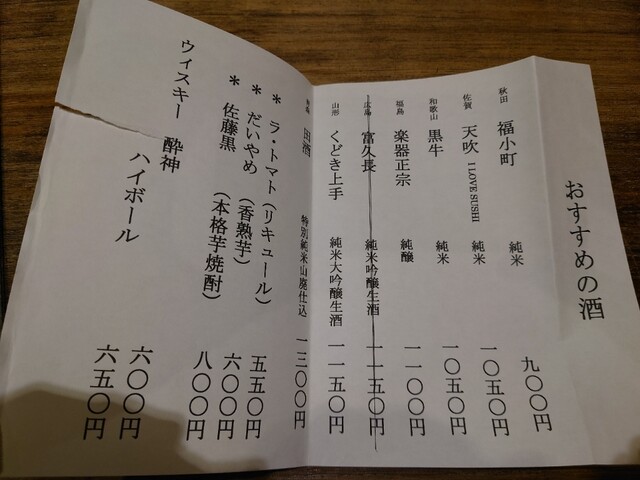 おすすめの酒
秋田 福小町 純米 九〇〇円
佐賀 天吹 I LOVE SUSHI 純米 一〇五〇円
和歌山 黒牛 純米 一〇五〇円
福島 楽器正宗 純醸 一一〇〇円
広島 富久長 純米吟醸生酒 一一五〇円
山形 くどき上手 純米大吟醸生酒 一一五〇円
田酒 特別純米山廃仕込 一三〇〇円
* ラ・トマト(リキュール) 五五〇円
* だいやめ (香熟芋) 六〇〇円
* 佐藤黒 (本格芋焼酎) 八〇〇円
ウィスキー 酔神 六〇〇円
ハイボール 六五〇円